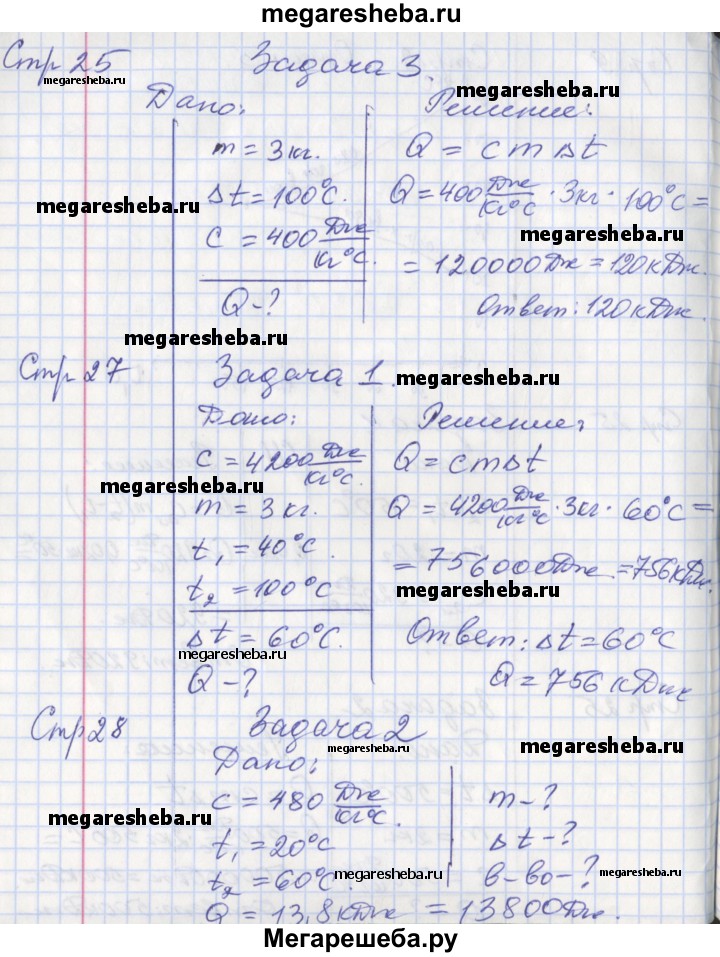 megaresheba.ru
Стр 25 Задача 3.
megaresheba.ru
Дано: Решение:
megaresheba.ru
m = 3 кг. Q = cmΔt
Δt = 100°C. Q = 400 Дж/кг°C · 3кг · 100°C =
megaresheba.ru
c = 400 Дж/кг°C. = 120000 Дж = 120 кДж.
megaresheba.ru
Q - ? Ответ: 120 кДж.
megaresheba.ru
Стр 27 Задача 1.
Дано: Решение:
c = 4200 Дж/кг°C. Q = cmΔt
megaresheba.ru
m = 3 кг. Q = 4200 Дж/кг°C · 3кг · 60°C =
t₁ = 40°C. = 756000 Дж. = 756 кДж.
t₂ = 100°C
megaresheba.ru
Δt = 60°C. Ответ: Δt = 60°C
megaresheba.ru
Q - ? Q = 756 кДж
Стр 28 Задача 2
megaresheba.ru
megaresheba.ru
Дано:
c = 480 Дж/кг°C. m - ?
megaresheba.ru
t₁ = 20°C Δt - ?
t₂ = 60°C. в-во - ?
megaresheba.ru
megaresheba.ru
Q = 13,8 кДж = 13800 Дж.
Мегарешеба.ру